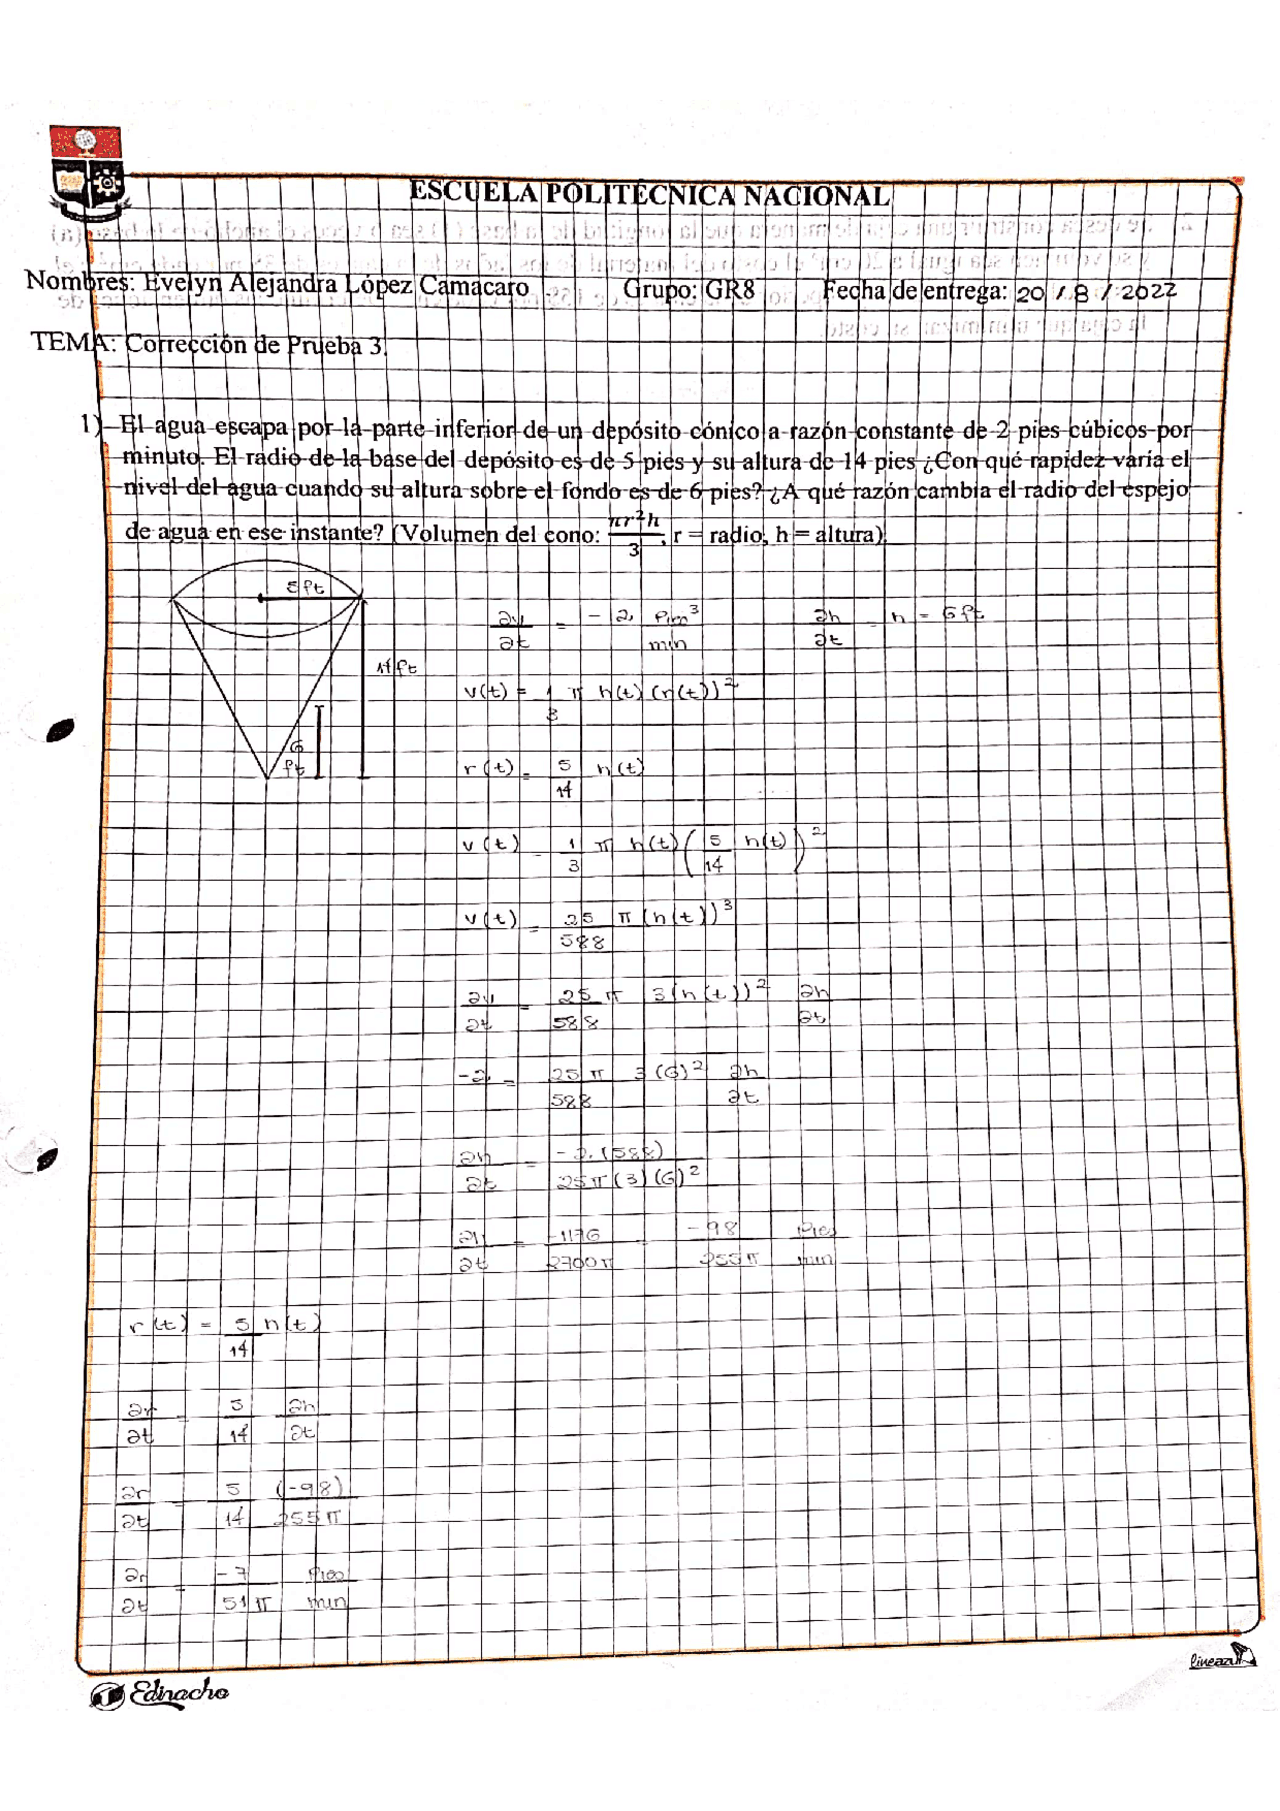 ESCUELA POLITÉCNICA NACIONAL
Nombres: Evelyn Alejandra López Camacaro Grupo: GR8 Fecha de entrega: 20 / 8 / 2022
TEMA: Corrección de Prueba 3.
1) El agua escapa por la parte inferior de un depósito cónico a razón constante de 2 pies cúbicos por
minuto. El radio de la base del depósito es de 5 pies y su altura de 14 pies ¿Con qué rapidez varía el
nivel del agua cuando su altura sobre el fondo es de 6 pies? ¿A qué razón cambia el radio del espejo
de agua en ese instante? (Volumen del cono: πr²h/3, r = radio, h = altura).
5 ft
14 ft
6 ft
∂v/∂t = -2 pies³/min ∂h/∂t = h = 6ft
v(t) = 1/3 π h(t) (h(t))²
r(t) = 5/14 h(t)
v(t) = 1/3 π h(t) (5/14 h(t))²
v(t) = 25/588 π (h(t))³
∂v/∂t = 25/588 π 3(h(t))² ∂h/∂t
-2 = 25π/588 3(6)² ∂h/∂t
∂h/∂t = -2.(588)/25π(3)(6)²
∂h/∂t = -1176/2700π = -98/255π pies/min
r(t) = 5/14 h(t)
∂r/∂t = 5/14 ∂h/∂t
∂r/∂t = 5/14 (-98)/255π
∂r/∂t = -7/51π pies/min
lineazul
Edinacho